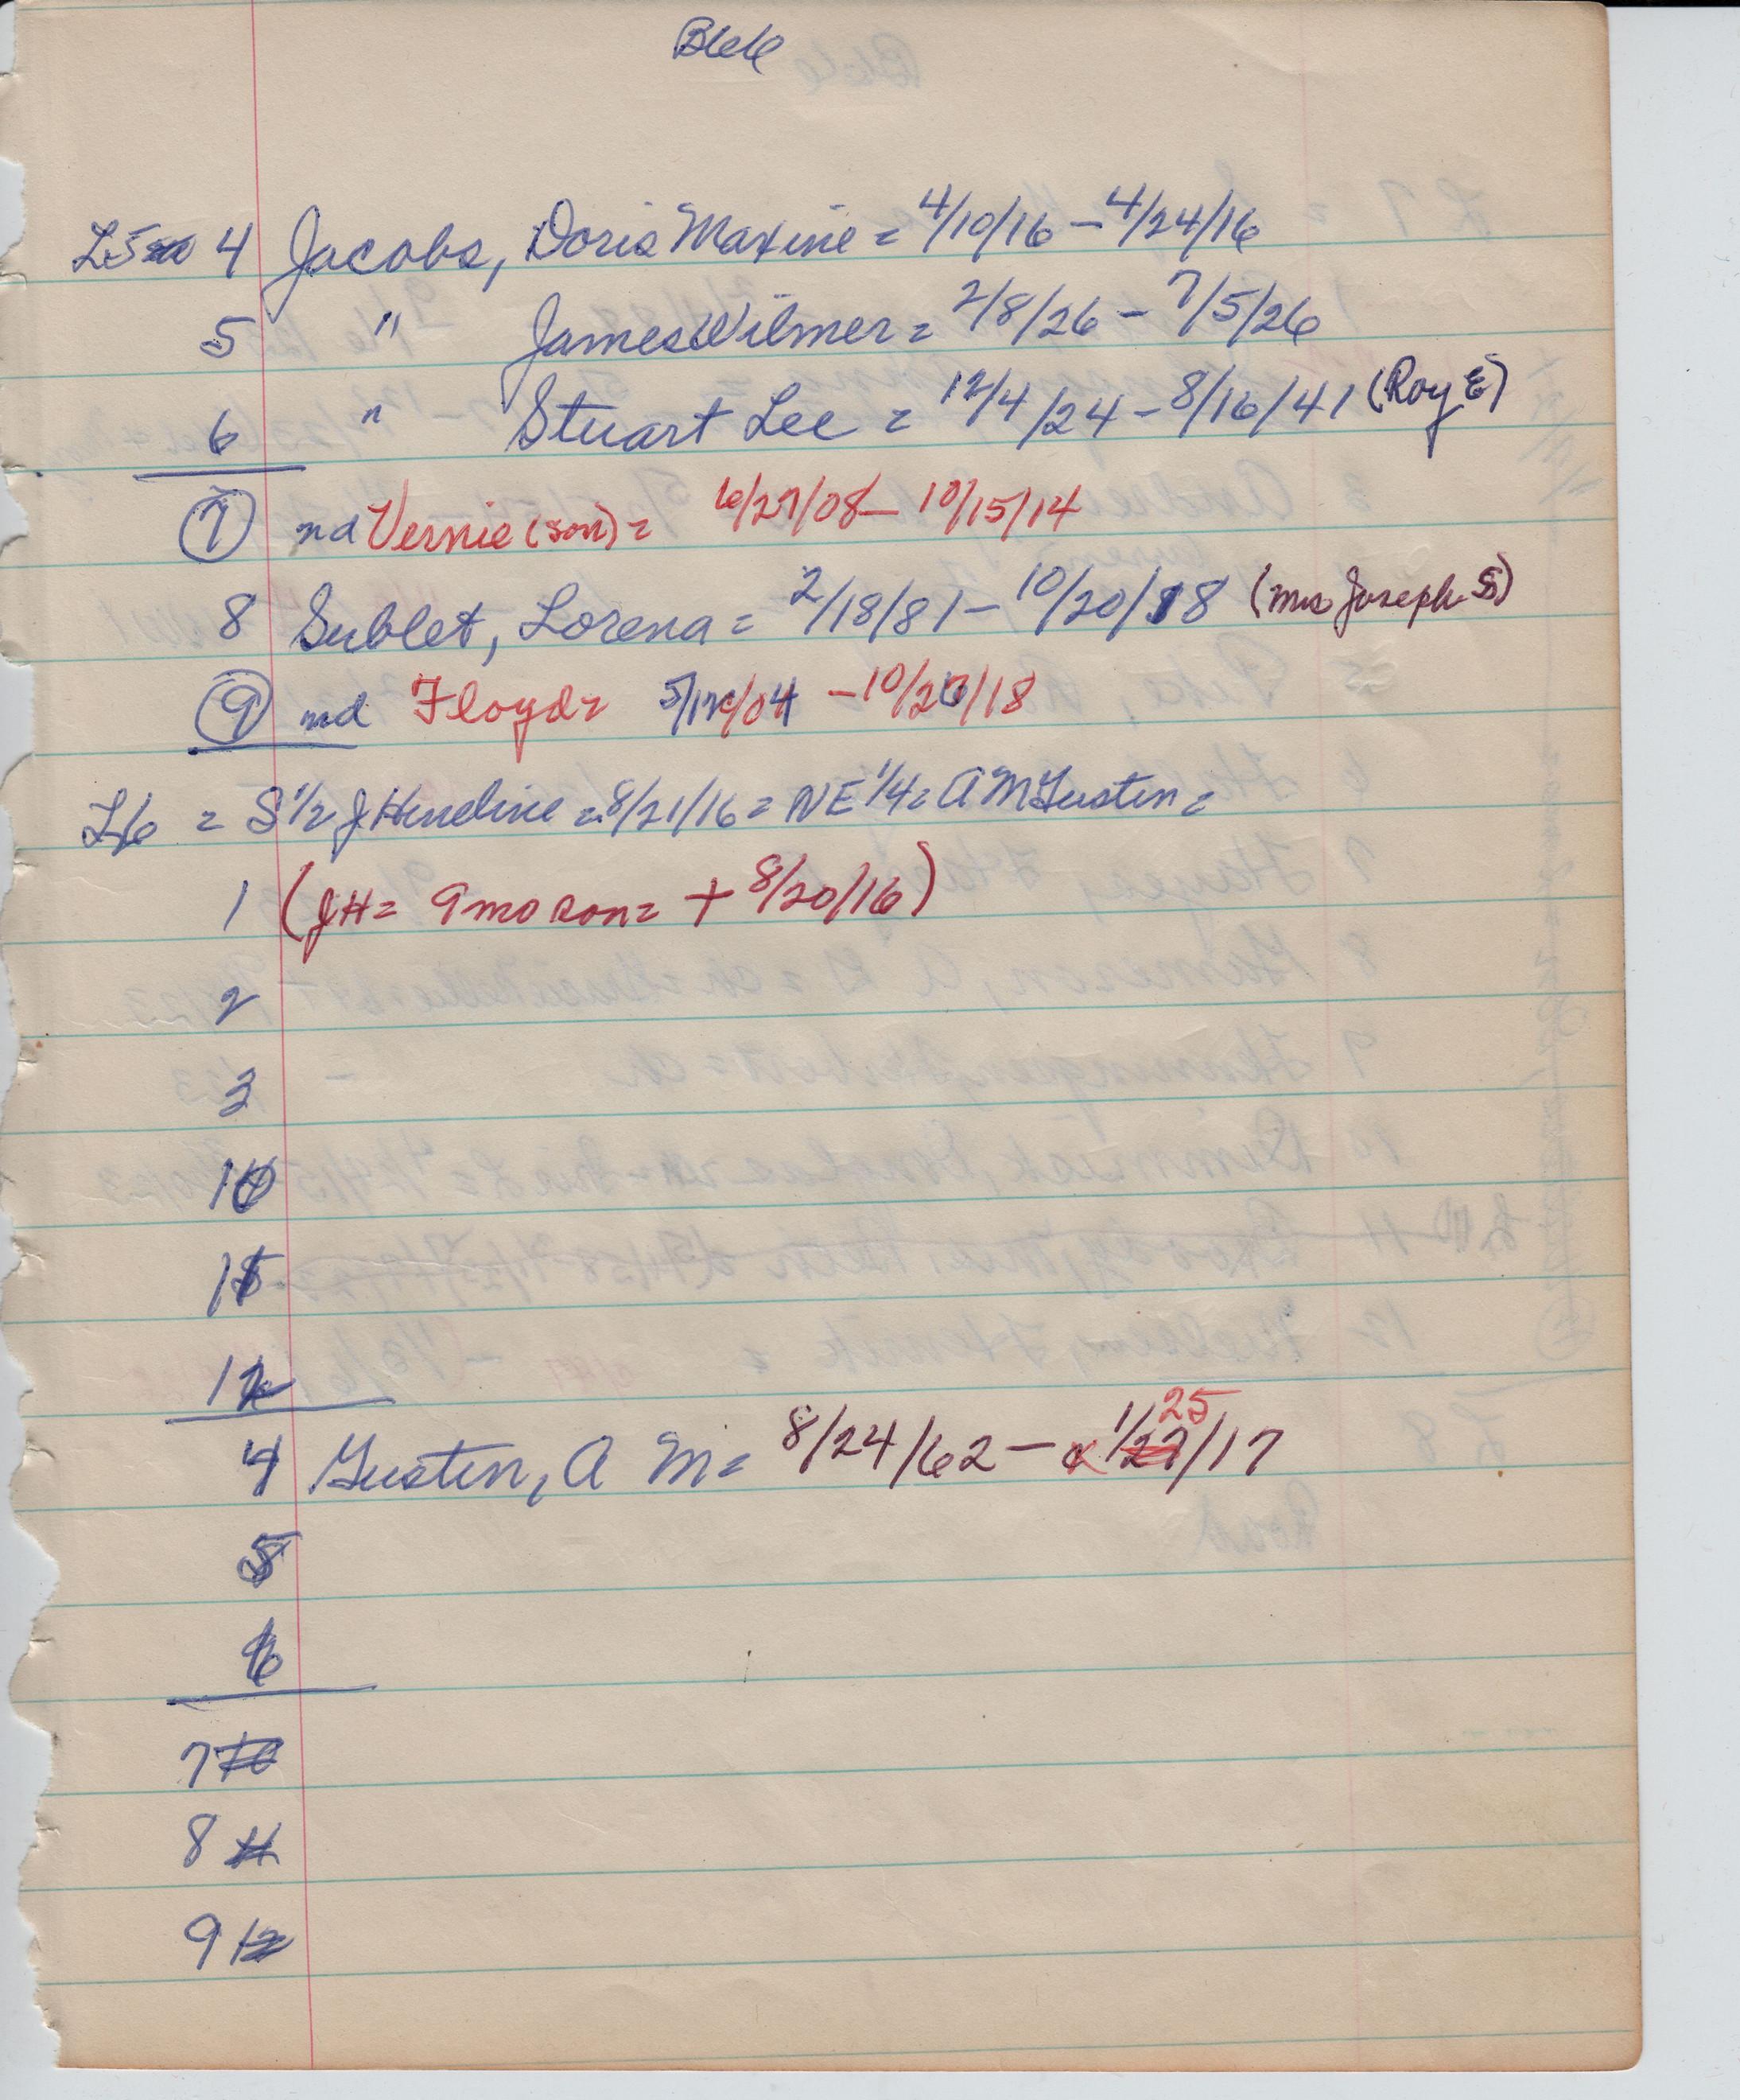 B66
L5 4 Jacobs, Doris Maxine = 4/10/16 - 4/24/16
5 " James Wilmer = 2/8/26 - 7/5/26
6 " Stuart Lee = 12/4/24 - 8/16/41 (Roy E)
7 nd Vernie (son) = 6/27/08 - 10/15/14
8 Sublet, Lorena = 2/18/81 - 10/20/18 (Mrs Joseph S)
9 nd Floyd = 5/12/04 - 10/20/18
L6 = S 1/2 J Heneline = 8/21/16 = NE 1/4 = A M Gustin =
1 (JH = 9 mo son = + 8/20/16)
2
3
10
11
12
4 Gustin, A M = 8/24/62 - 1/25/17
5
6
7
8
9